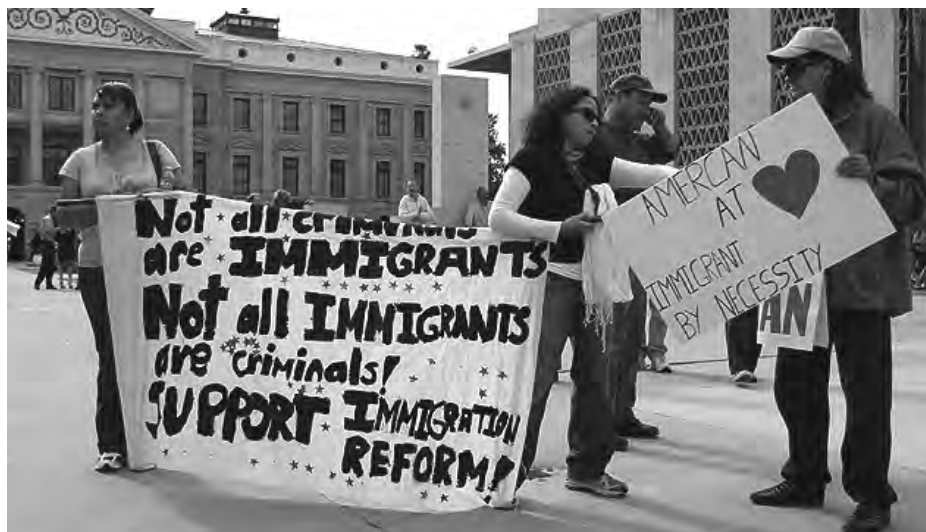 Not all criminals
are IMMIGRANTS
Not all IMMIGRANTS
are criminals!
SUPPORT IMMIGRATION
REFORM!
AMERICAN
AT
IMMIGRANT
BY NECESSITY
AN